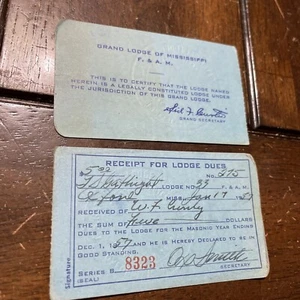 GRAND LODGE OF MISSISSIPPI
F. & A. M.
THIS IS TO CERTIFY THAT THE LODGE NAMED
HEREIN IS A LEGALLY CONSTITUTED LODGE UNDER
THE JURISDICTION OF THIS GRAND LODGE.
GRAND SECRETARY
RECEIPT FOR LODGE DUES
$5.00 NO. 275
LODGE NO. 33 F. & A. M.
Oxford MISS. Jan 17 195
RECEIVED OF W. F.
THE SUM OF Five DOLLARS
DUES TO THE LODGE FOR THE MASONIC YEAR ENDING
DEC. 1, 1957 AND HE IS HEREBY DECLARED TO BE IN
GOOD STANDING.
SERIES B 8323
(SEAL) SECRETARY
Signature